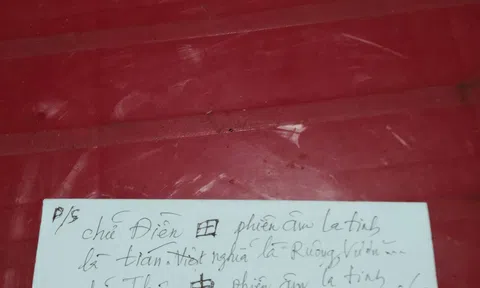 P/S
chữ Điền 田 phiên âm la tinh
là tián. Việt nghĩa là Ruộng, Vườn...
phiên âm la tinh